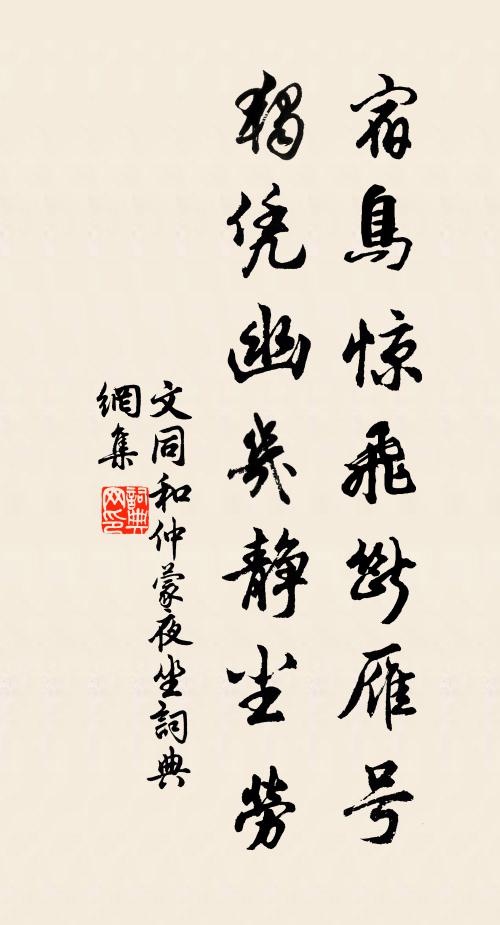 宿鳥惊飛斷雁号
獨凭幽幾靜尘勞
文同和仲蒙夜坐詞典
網集
詞典
网印